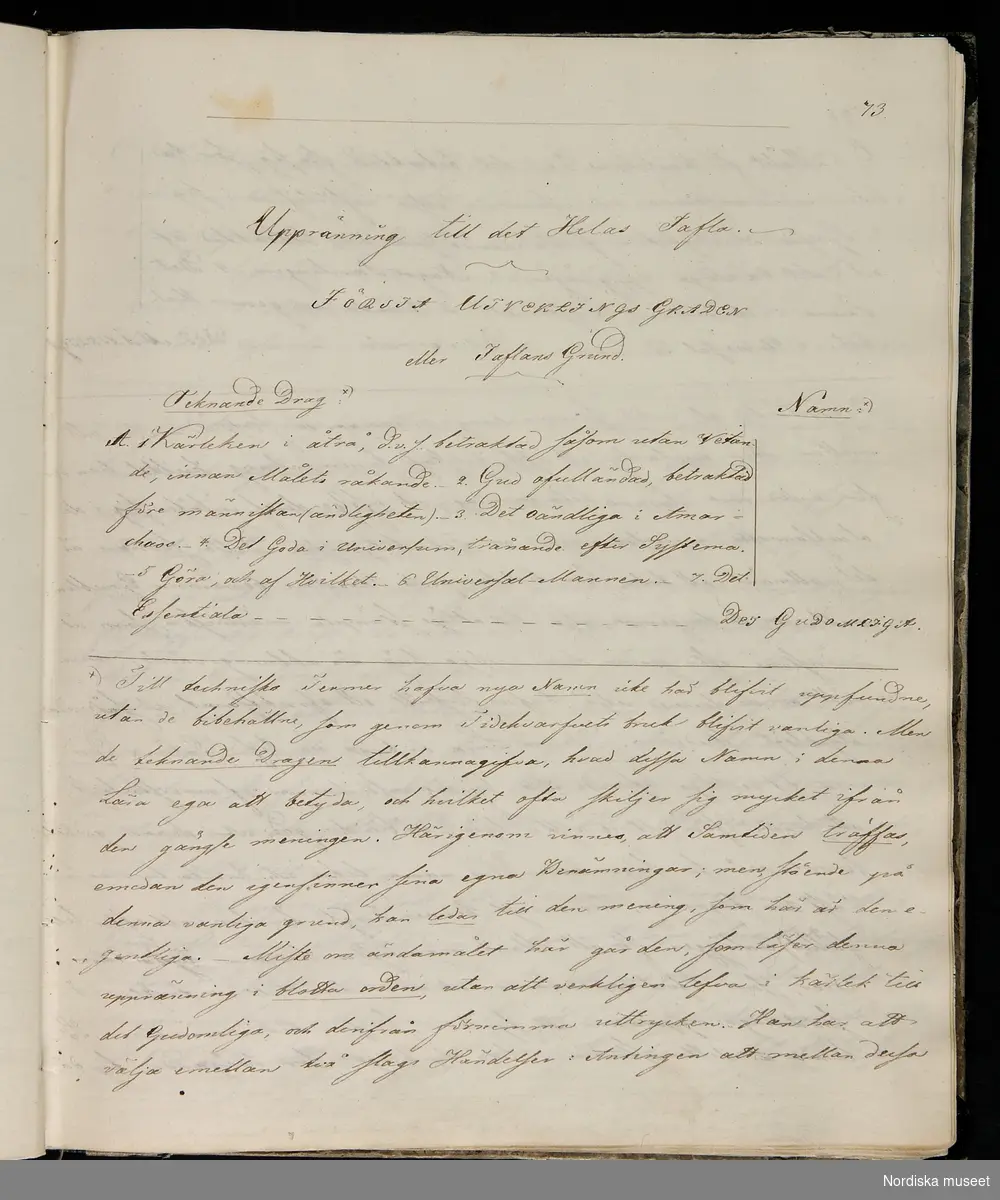 73.
Uppränning till det Helas Tafla.
FÖRSTA UTVECKLINGSGRADEN
eller Taflans Grund.
Teknande Drag *)
Namn:)
A. 1 Kärleken i åtrå, d.v.s. betraktad såsom utan Vetan-
de, innan Målets råkande. – 2. Gud ofulländad, betraktad
före människan (ändligheten). – 3. Det oändliga i Amar-
chaos. – 4. Det Goda i Universum, trånande efter Systema.
– 5 Göra, och af Hvilket. – 6 Universal-Mannen. – 7. Det
Essentiala – – – – – – – – – – – – DET GUDOMLIGA.
*) Till techniska Termer hafva nya Namn icke här blifvit uppfundne,
utan de bibehållne, som genom Tidehvarfvets bruk blifvit vanliga. Men
de teknande Dragen tillkännagifva, hvad dessa Namn i denna
Lära ega att betyda, och hvilket ofta skiljer sig mycket ifrån
den gängse meningen. Härigenom vinnes, att Samtiden träffas,
emedan den igenfinner sina egna Benämningar; men, stående på
denna vanliga grund, kan ledas till den mening, som här är den e-
gentliga. – Miste om ändamålet här går den, som läser denna
uppränning i blotta orden, utan att verkligen lefva i kärlek till
det Gudomliga, och derifrån förnimma uttrycken. Han har att
välja emellan två slags Händelser: Antingen att mellan dessa
Nordiska museet